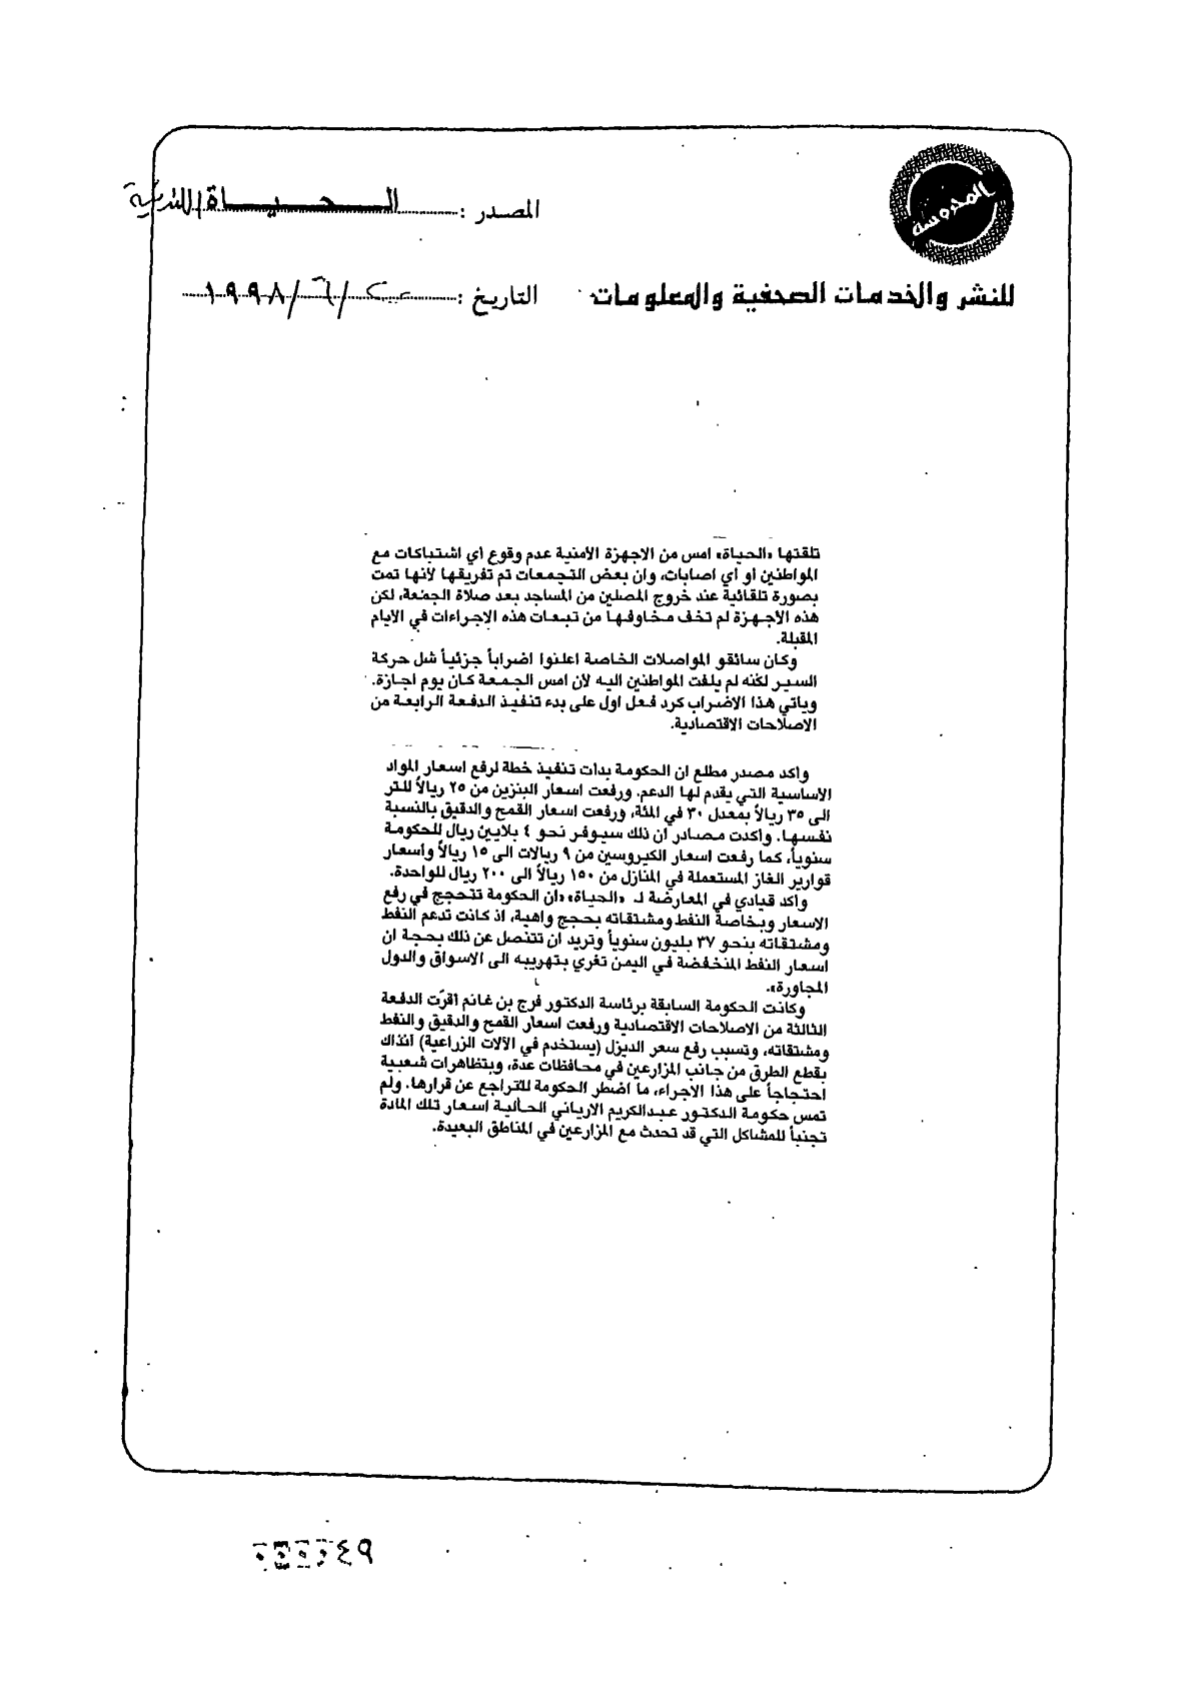 المحروسة
المصدر : الحياة اللندنية
للنشر والخدمات الصحفية والمعلومات
التاريخ : ٢٠/٦/١٩٩٨
تلقتها «الحياة» امس من الاجهزة الأمنية عدم وقوع أي اشتباكات مع
المواطنين أو أي اصابات، وان بعض التجمعات تم تفريقها لأنها تمت
بصورة تلقائية عند خروج المصلين من المساجد بعد صلاة الجمعة، لكن
هذه الأجهزة لم تخف مخاوفها من تبعات هذه الإجراءات في الأيام
المقبلة.
وكان سائقو المواصلات الخاصة اعلنوا اضراباً جزئياً شل حركة
السير لكنه لم يلفت المواطنين اليه لأن امس الجمعة كان يوم اجازة.
ويأتي هذا الاضراب كرد فعل اول على بدء تنفيذ الدفعة الرابعة من
الاصلاحات الاقتصادية.
وأكد مصدر مطلع ان الحكومة بدأت تنفيذ خطة لرفع اسعار المواد
الأساسية التي يقدم لها الدعم. ورفعت اسعار البنزين من ٢٥ ريالاً للتر
الى ٣٥ ريالاً بمعدل ٣٠ في المئة، ورفعت اسعار القمح والدقيق بالنسبة
نفسها. وأكدت مصادر ان ذلك سيوفر نحو ٤ بلايين ريال للحكومة
سنوياً، كما رفعت اسعار الكيروسين من ٩ ريالات الى ١٥ ريالاً وأسعار
قوارير الغاز المستعملة في المنازل من ١٥٠ ريالاً الى ٢٠٠ ريال للواحدة.
وأكد قيادي في المعارضة لـ «الحياة» «ان الحكومة تتحجج في رفع
الاسعار وبخاصة النفط ومشتقاته بحجج واهية، اذ كانت تدعم النفط
ومشتقاته بنحو ٣٧ بليون سنوياً وتريد ان تتنصل عن ذلك بحجة ان
اسعار النفط المنخفضة في اليمن تغري بتهريبه الى الاسواق والدول
المجاورة».
وكانت الحكومة السابقة برئاسة الدكتور فرج بن غانم أقرّت الدفعة
الثالثة من الاصلاحات الاقتصادية ورفعت اسعار القمح والدقيق والنفط
ومشتقاته، وتسبب رفع سعر الديزل (يستخدم في الآلات الزراعية) آنذاك
بقطع الطرق من جانب المزارعين في محافظات عدة، وبتظاهرات شعبية
احتجاجاً على هذا الاجراء، ما اضطر الحكومة للتراجع عن قرارها. ولم
تمس حكومة الدكتور عبدالكريم الارياني الحالية اسعار تلك المادة
تجنباً للمشاكل التي قد تحدث مع المزارعين في المناطق البعيدة.